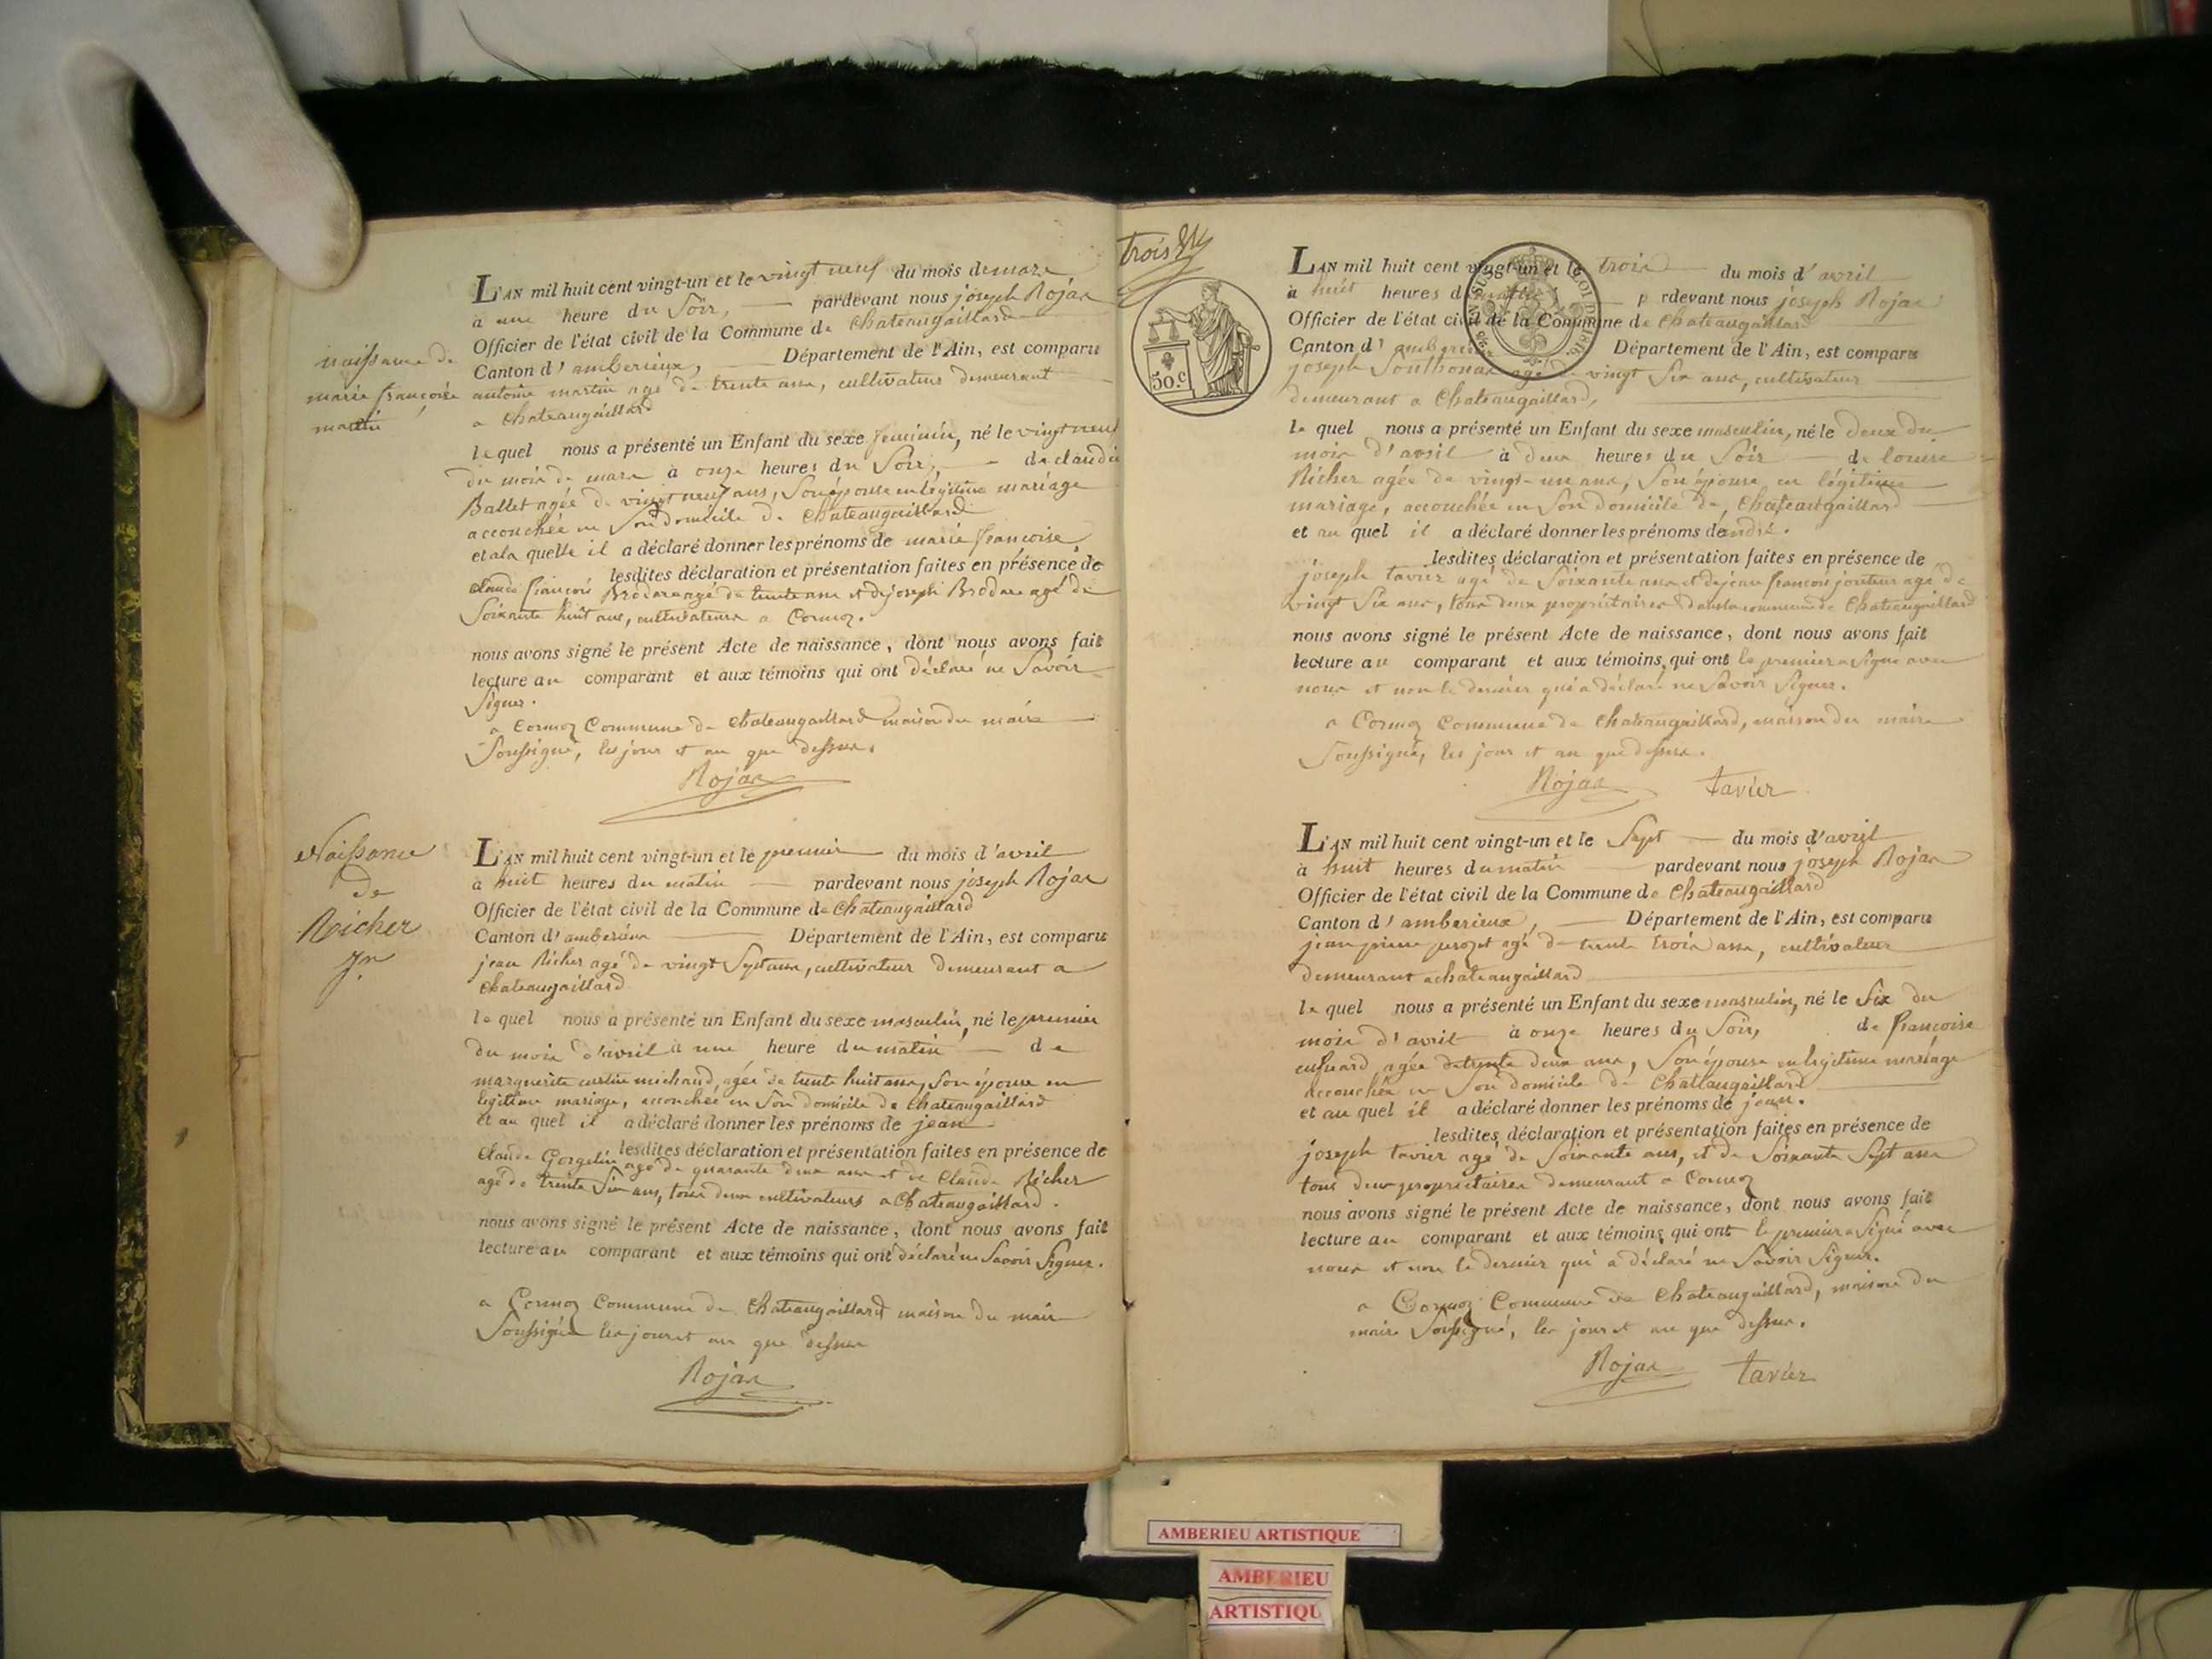 naissance de
marie françoise
martin
L'AN mil huit cent vingt-un et le vingt neuf du mois de mars
à une heure du Soir, pardevant nous joseph Rojas
Officier de l'état civil de la Commune de Chateaugaillard
Canton d'amberieux, Département de l'Ain, est comparu
antoine martin agé de trente ans, cultivateur demeurant
a Chateaugaillard
le quel nous a présenté un Enfant du sexe feminin, né le vingt neuf
du mois de mars à onze heures du Soir, de claudine
Ballet agée de vingt neuf ans, Son épouse en légitime mariage
accouchée en Son domicile de Chateaugaillard
et a la quelle il a déclaré donner les prénoms de marie françoise
lesdites déclaration et présentation faites en présence de
Claude françois Brodare agé de trente ans et de joseph Brodare agé de
Soixante huit ans, cultivateurs a Cormoz.
nous avons signé le présent Acte de naissance, dont nous avons fait
lecture au comparant et aux témoins qui ont déclaré ne Savoir
Signer.
a Cormoz Commune de Chateaugaillard maison du maire
Soussigné, les jour et an que dessus.
Rojas
Naissance
de
Richer
Jn
L'AN mil huit cent vingt-un et le premier du mois d'avril
à huit heures du matin pardevant nous joseph Rojas
Officier de l'état civil de la Commune de Chateaugaillard
Canton d'amberieux Département de l'Ain, est comparu
jean Richer agé de vingt Sept ans, cultivateur demeurant a
Chateaugaillard
le quel nous a présenté un Enfant du sexe masculin, né le premier
du mois d'avril à une heure du matin de
marguerite michaud, agée de trente huit ans, Son épouse en
legitime mariage, accouchée en Son domicile de Chateaugaillard
et au quel il a déclaré donner les prénoms de jean
lesdites déclaration et présentation faites en présence de
Claude Gorgelin agé de quarante deux ans et de Claude Richer
agé de trente Six ans, tous deux cultivateurs a Chateaugaillard.
nous avons signé le présent Acte de naissance, dont nous avons fait
lecture au comparant et aux témoins qui ont déclaré ne Savoir Signer.
a Cormoz Commune de Chateaugaillard maison du maire
Soussigné les jour et an que dessus
Rojas
trois
50.c
L'AN mil huit cent vingt-un et le trois du mois d'avril
à huit heures du matin pardevant nous joseph Rojas
Officier de l'état civil de la Commune de Chateaugaillard
Canton d'amberieux Département de l'Ain, est comparu
joseph Southonax agé de vingt Six ans, cultivateur
demeurant a Chateaugaillard,
le quel nous a présenté un Enfant du sexe masculin, né le deux du
mois d'avril à deux heures du Soir de louise
Richer agée de vingt-un ans, Son épouse en légitime
mariage, accouchée en Son domicile de Chateaugaillard
et au quel il a déclaré donner les prénoms de andré.
lesdites déclaration et présentation faites en présence de
joseph tavier agé de Soixante ans et de jean françois jouteur agé de
vingt Six ans, tous deux propriétaires dans la commune de Chateaugaillard
nous avons signé le présent Acte de naissance, dont nous avons fait
lecture au comparant et aux témoins qui ont le premier a Signé avec
nous et non le dernier qui a déclaré ne Savoir Signer.
a Cormoz Commune de Chateaugaillard, maison du maire
Soussigné, les jour et an que dessus.
Rojas tavier
L'AN mil huit cent vingt-un et le Sept du mois d'avril
à huit heures du matin pardevant nous joseph Rojas
Officier de l'état civil de la Commune de Chateaugaillard
Canton d'amberieux, Département de l'Ain, est comparu
jean pierre agé de trente trois ans, cultivateur
demeurant a chateaugaillard
le quel nous a présenté un Enfant du sexe masculin, né le Six du
mois d'avril à onze heures du Soir, de françoise
agée de trente deux ans, Son épouse en legitime mariage
accouchée en Son domicile de Chateaugaillard
et au quel il a déclaré donner les prénoms de jean.
lesdites déclaration et présentation faites en présence de
joseph tavier agé de Soixante ans, et de Soixante Sept ans
tous deux propriétaires demeurant a Cormoz
nous avons signé le présent Acte de naissance, dont nous avons fait
lecture au comparant et aux témoins qui ont le premier a Signé avec
nous et non le dernier qui a déclaré ne Savoir Signer.
a Cormoz Commune de Chateaugaillard, maison du
maire Soussigné, les jour et an que dessus.
Rojas tavier
AMBERIEU ARTISTIQUE
AMBERIEU
ARTISTIQU